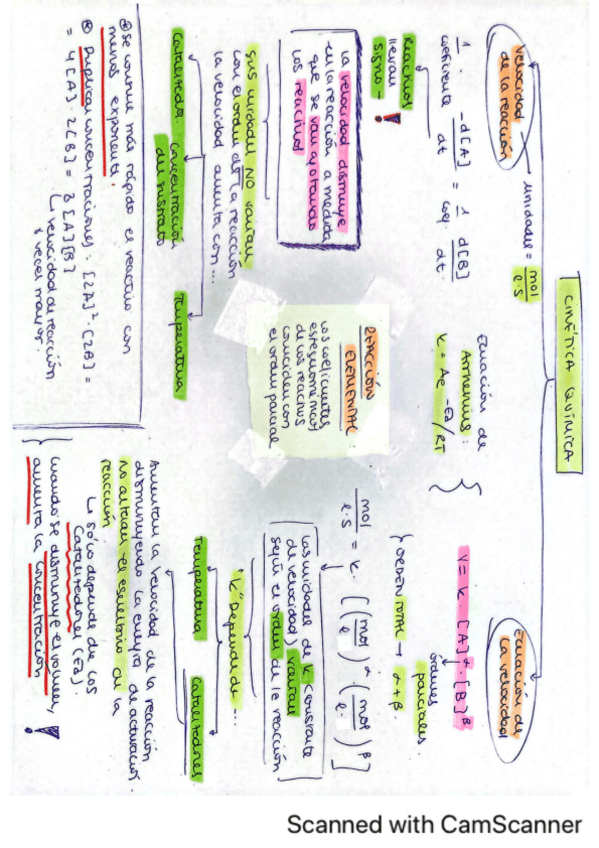 CINÉTICA QUÍMICA
Velocidad
de la reacción
unidades = mol / l·s
1/coeficiente · -d[A]/dt = 1/coef. · d[B]/dt
Reactivos
llevan
signo - !
La velocidad disminuye
en la reacción a medida
que se van agotando
los reactivos
sus unidades NO varían
con el orden de la reacción
la velocidad aumenta con...
Catalizador
Concentración
Temperatura
⊛ Se consume más rápido el reactivo con
menos exponente.
⊛ Duplicar concentraciones: [2A]²·[2B] =
= 4[A]·2[B] = 8[A][B]
↳ velocidad de reacción
8 veces mayor.
Ecuación de
Arrhenius:
K = Ae -Ea/RT
REACCIÓN
ELEMENTAL
Los coeficientes
estequiométricos
de los reactivos
coinciden con
el orden parcial
Ecuación de
la velocidad
V = k · [A]α · [B]β
órdenes
parciales
ORDEN TOTAL → α + β
mol / l·s = k · [(mol/l)α · (mol/l)β]
Las unidades de k constante
de velocidad varían
según el orden de la reacción
"k" Depende de...
Temperatura
Catalizadores
Aumentan la velocidad de la reacción
disminuyendo la energía de activación.
No alteran el equilibrio de la
reacción
↳ sólo depende de los
Catalizadores (Ea).
Cuando se disminuye el volumen,
aumenta la concentración !
Scanned with CamScanner